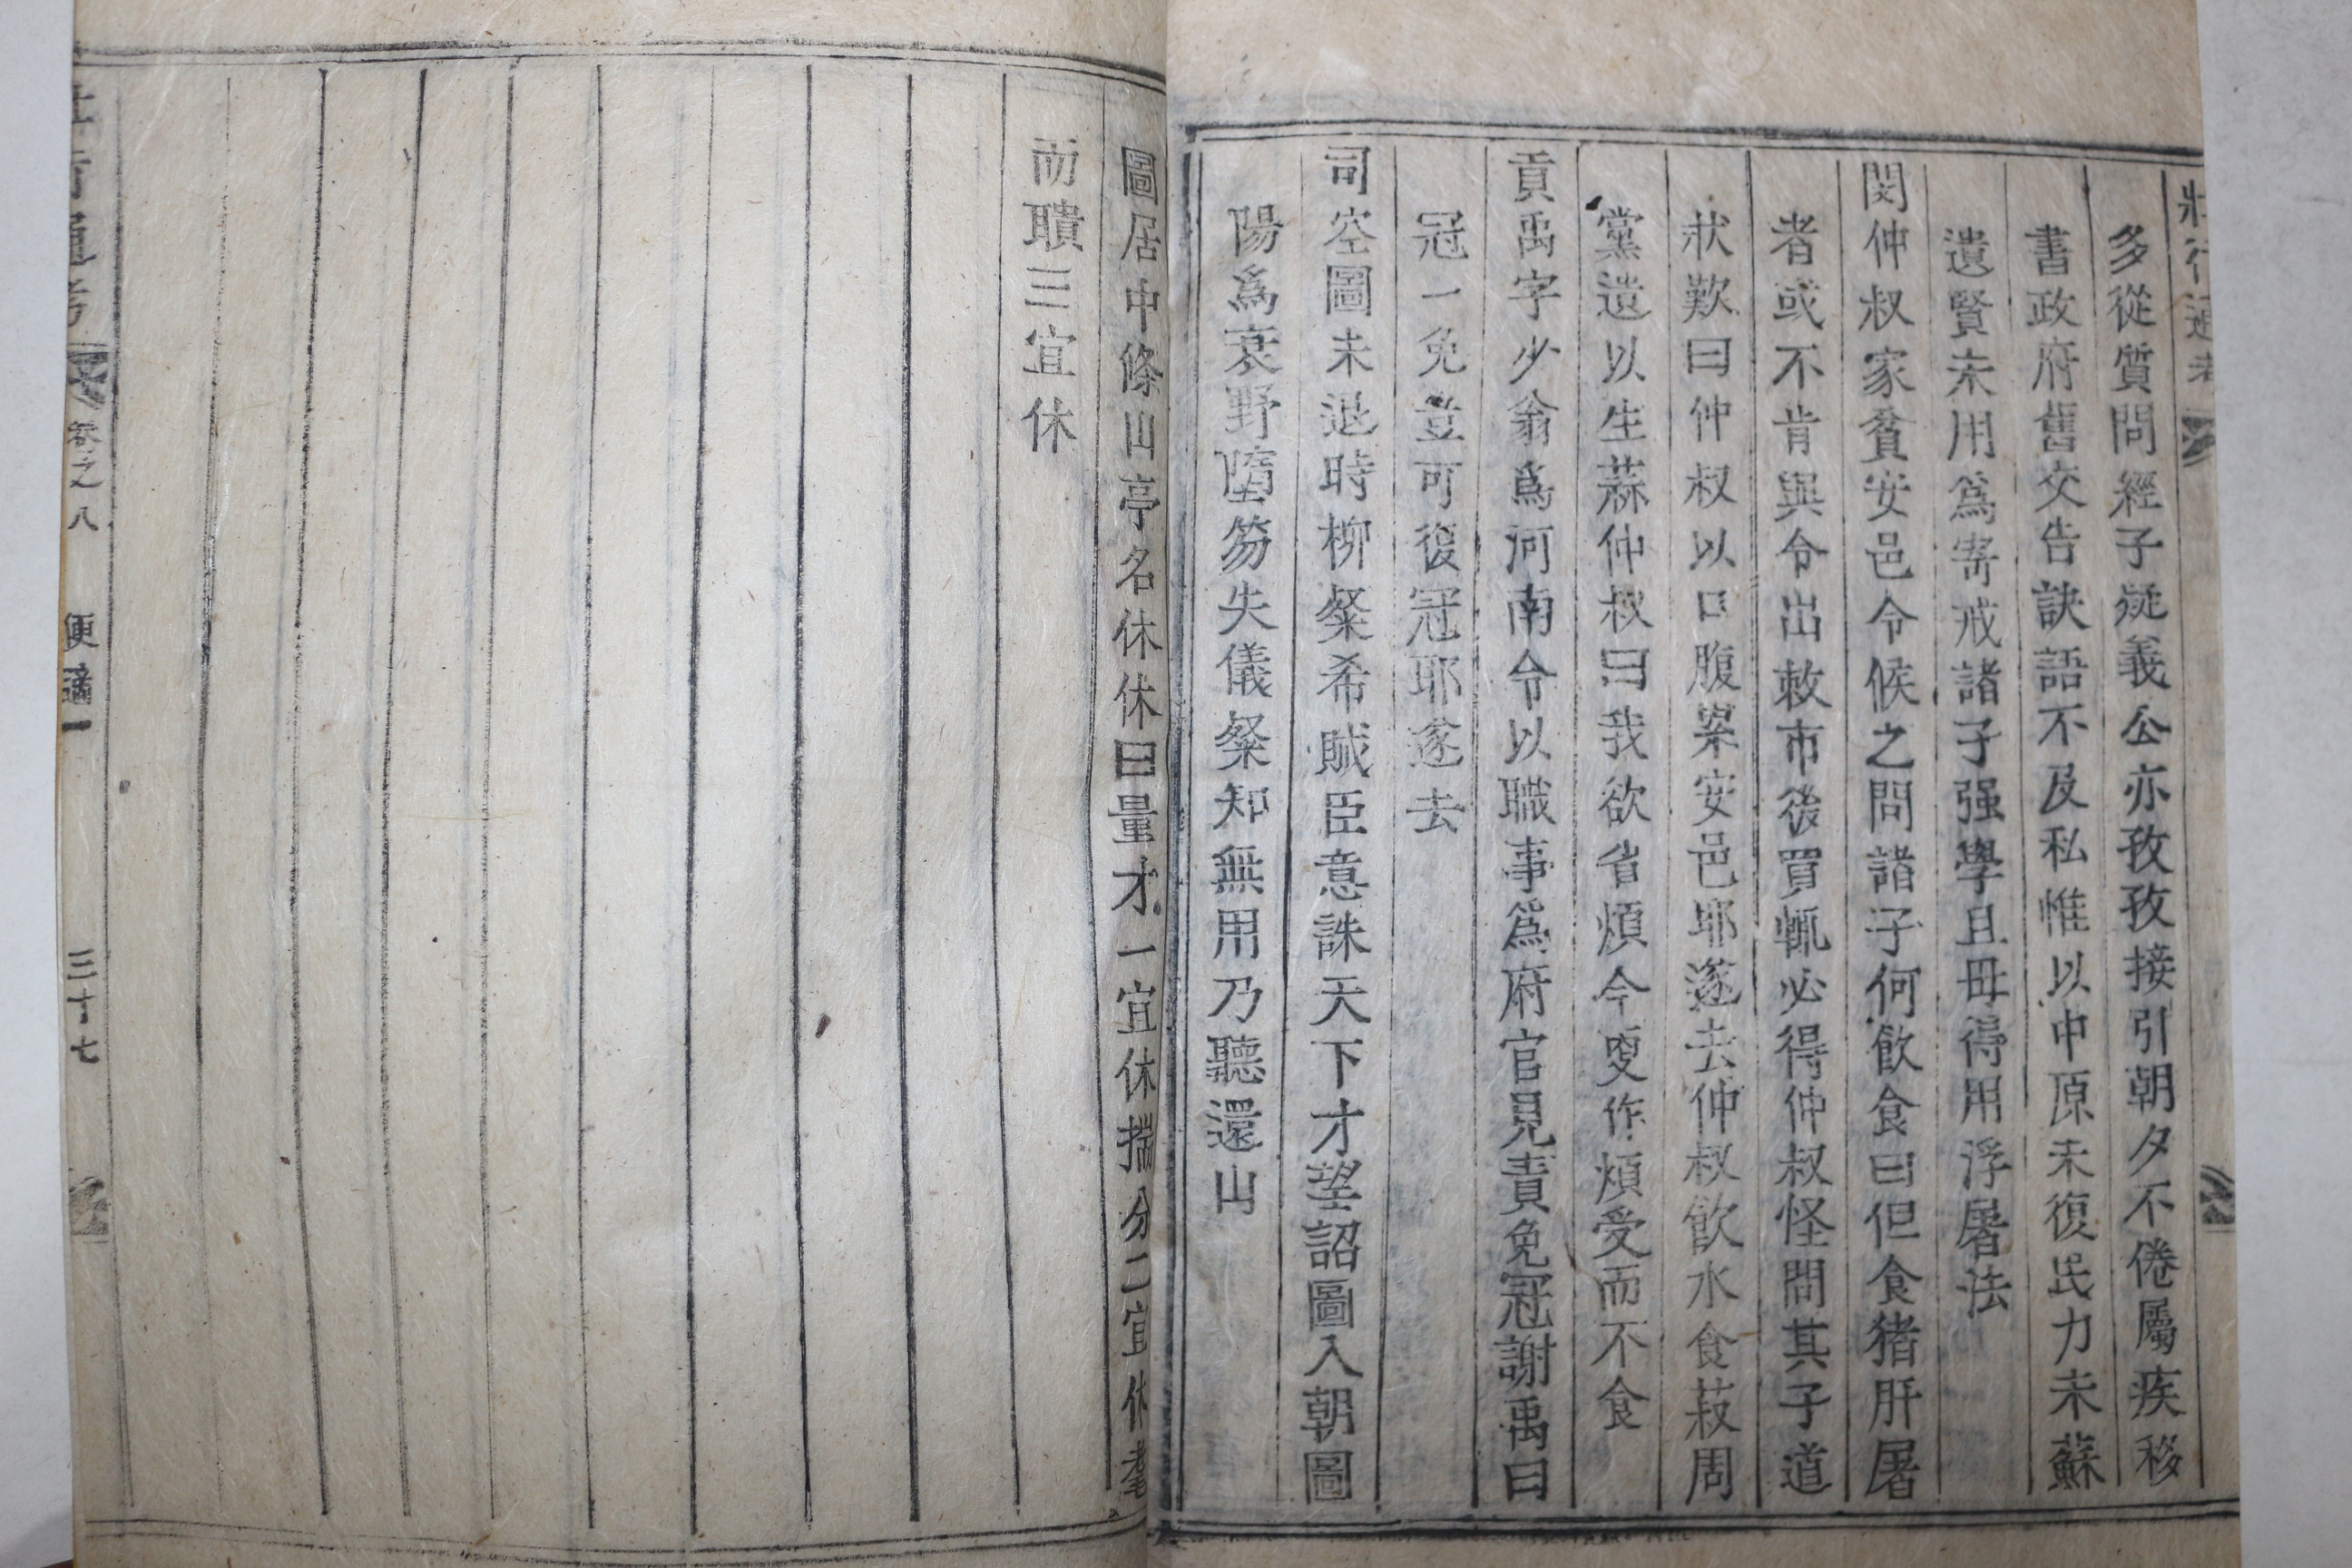 多從質問經子疑義公亦孜孜接引朝夕不倦屬疾移
書政府舊交告訣語不及私惟以中原未復民力未蘇
遺賢未用爲寄戒諸子强學且毋得用浮屠法
閔仲叔家貧安邑令候之問諸子何飮食曰但食猪肝屠
者或不肯與令出敕市後買輒必得仲叔怪問其子道
狀歎曰仲叔以口腹累安邑耶遂去仲叔飮水食菽周
黨遺以生蒜仲叔曰我欲省煩今更作煩受而不食
貢禹字少翁爲河南令以職事爲府官見責免冠謝禹曰
冠一免豈可復冠耶遂去
司空圖未退時柳粲希賊臣意誅天下才望詔圖入朝圖
陽爲衰野墮笏失儀粲知無用乃聽還山
圖居中條山亭名休休曰量才一宜休揣分二宜休耄
而聵三宜休
卷之八 便 一 三十七